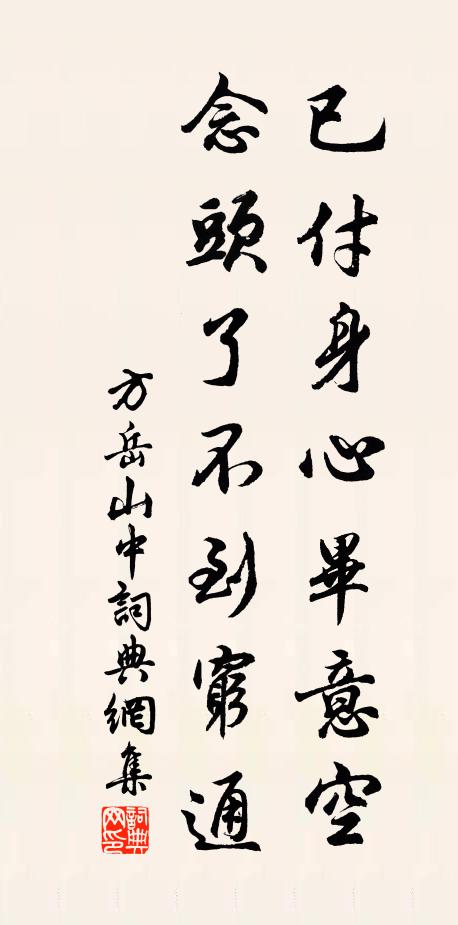 已付身心畢意空
念頭了不到窮通
方岳山中詞典網集
詞典網印